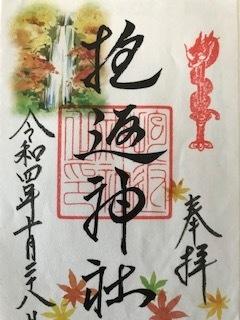 奉拝
抱返神社
令和四年十月二十八日